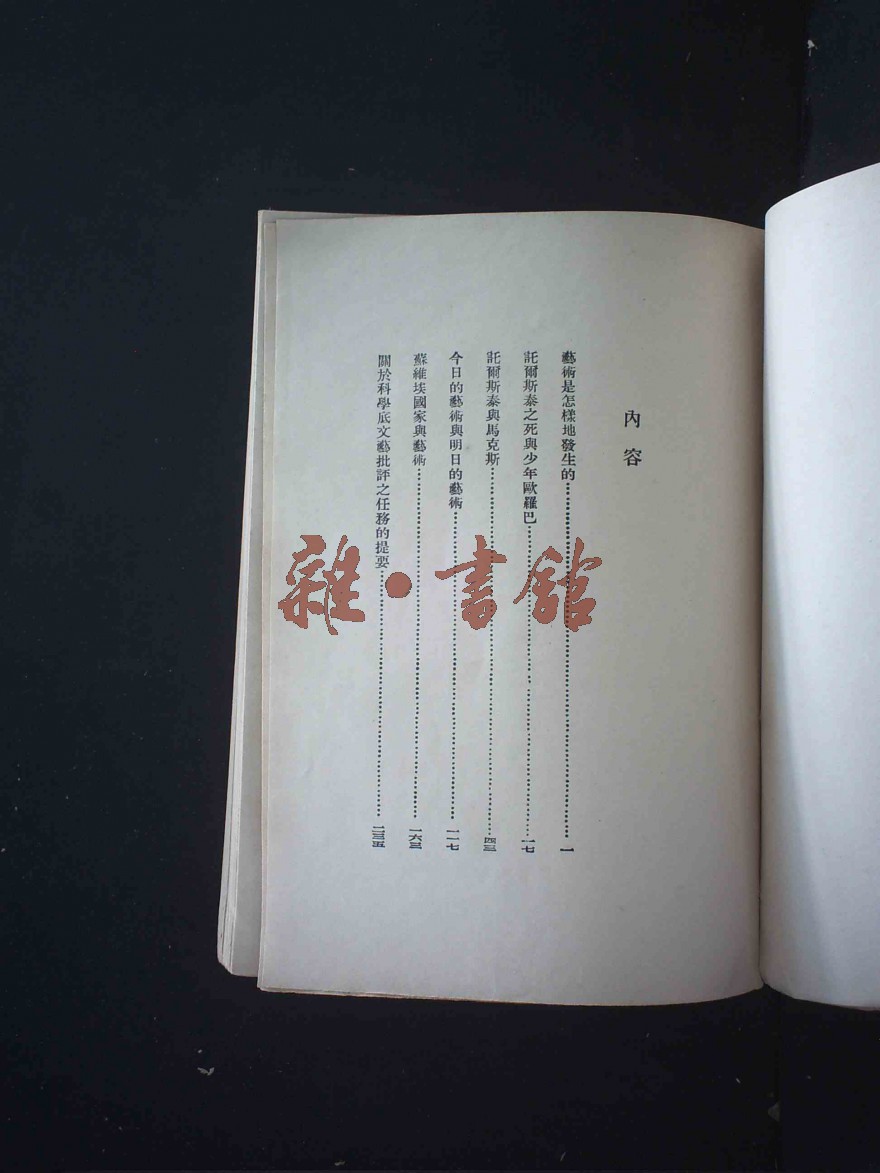 內容
藝術是怎樣地發生的……一
託爾斯泰之死與少年歐羅巴……一七
託爾斯泰與馬克斯……四三
今日的藝術與明日的藝術……一一七
蘇維埃國家與藝術……一六三
關於科學底文藝批評之任務的提要……二三五
雜·書館